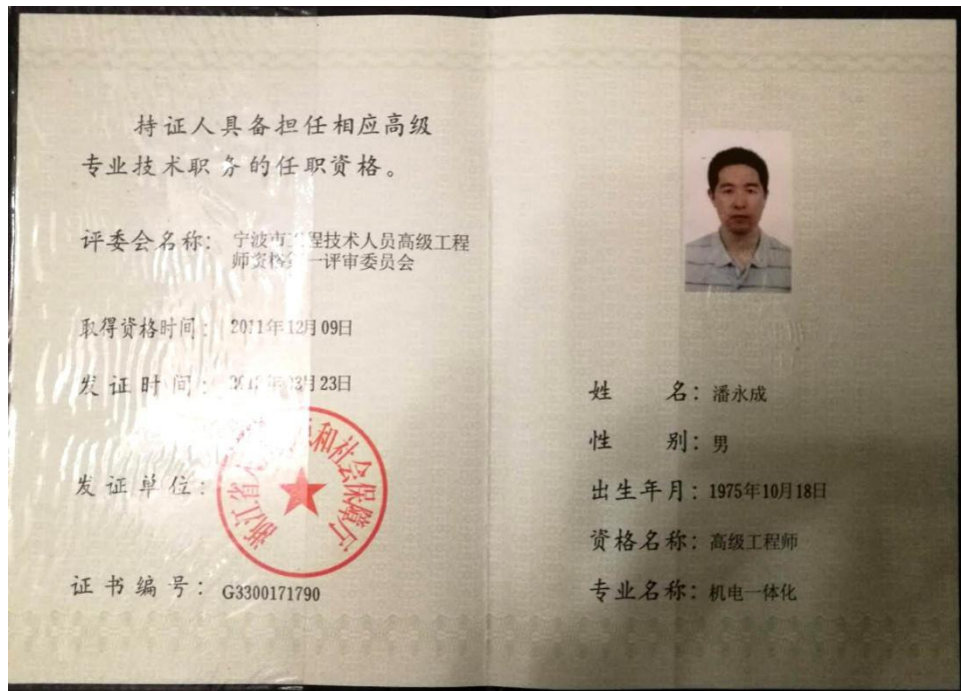 持证人具备担任相应高级
专业技术职务的任职资格。
评委会名称： 宁波市工程技术人员高级工程
师资格第一评审委员会
取得资格时间： 2011年12月09日
发证时间： 月23日
发证单位：
浙江省人 和社会保障厅
证书编号： G3300171790
姓 名： 潘永成
性 别： 男
出生年月： 1975年10月18日
资格名称： 高级工程师
专业名称： 机电一体化